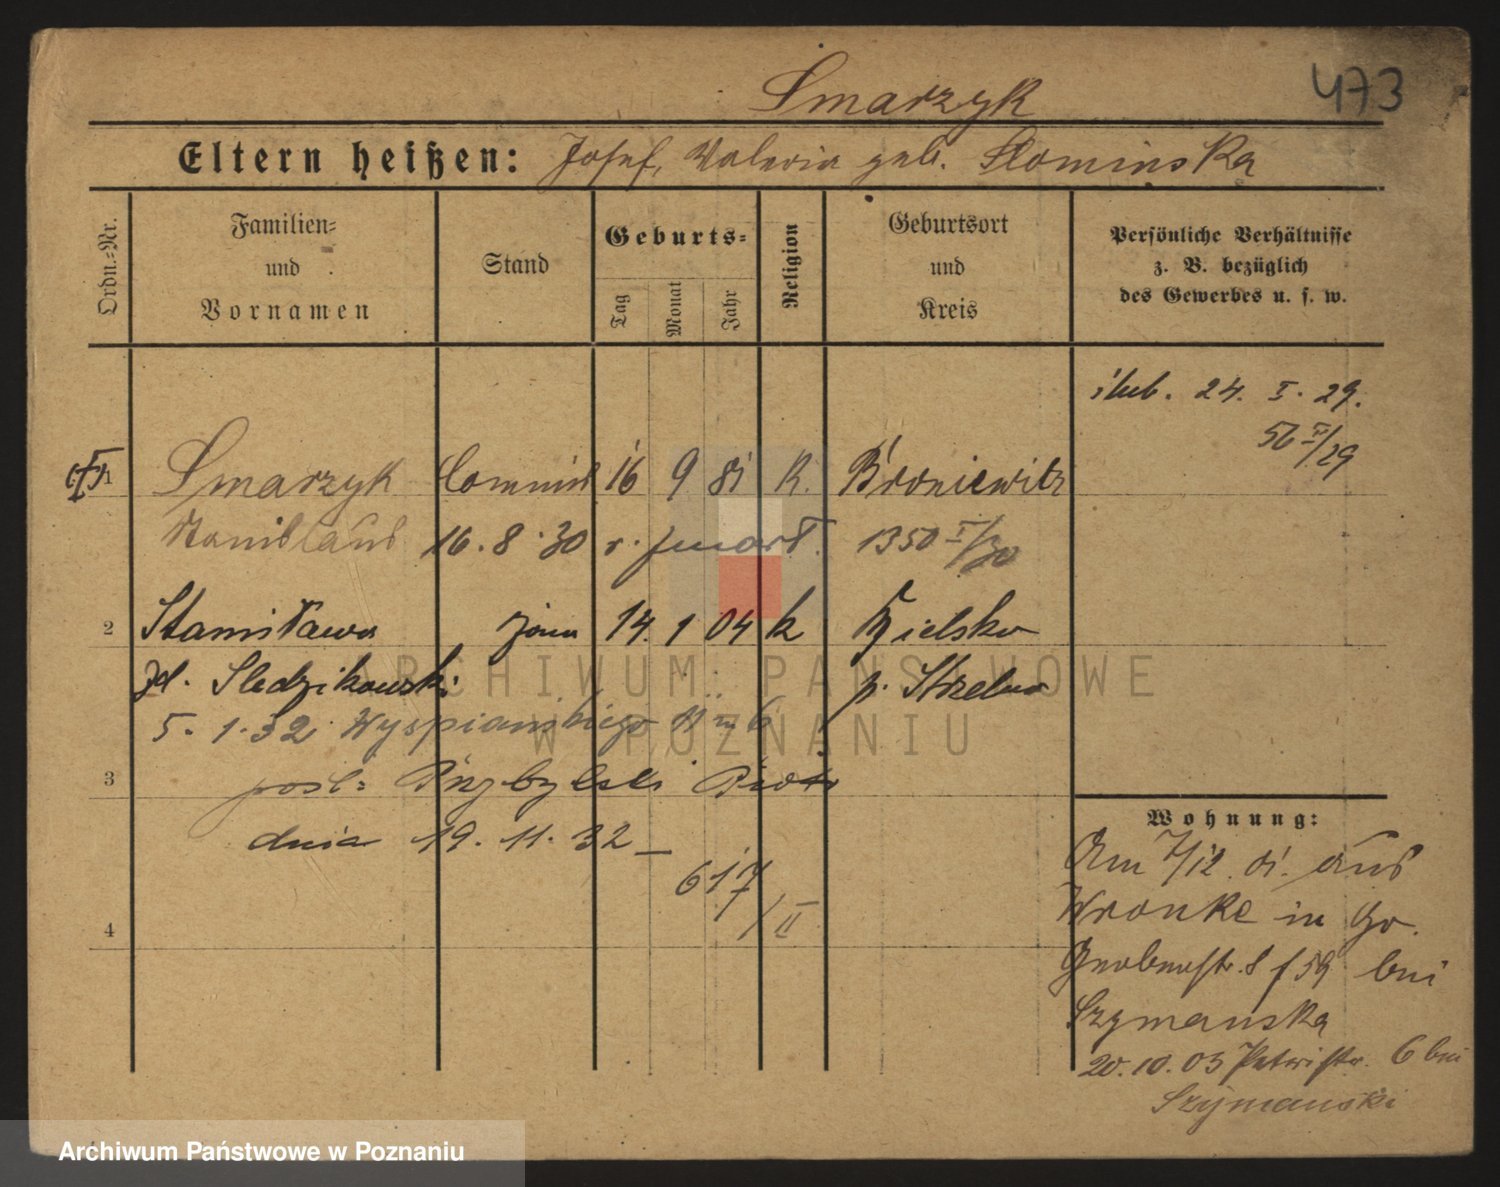 Smarzyk
473
Eltern heißen: Josef, Valeria geb. Slominska
Ordn.-Nr.
Familien-
und
Vornamen
Stand
Geburts-
Tag
Monat
Jahr
Religion
Geburtsort
und
Kreis
Persönliche Verhältnisse
z. B. bezüglich
des Gewerbes u. s. w.
24. I. 29.
56 /29
1 Smarzyk Commis 16 9 81 K. Broniewitz
Stanislaus 16.8.30 1350
2 Stanisława żona 14. 1 04 k Bielsko
zd. Sledzikowski p. Strzelno
5.1.32 Wyspiańskiego 11 m 6
3 Przybylski Piotr
dnia 19. 11. 32
617/II
4
Wohnung:
Am 7/12. 01. aus
Wronke in Gr.
59 bei
Szymanska
20.10.03 Petristr. 6 bei
Szymanski
ARCHIWUM PAŃSTWOWE
W POZNANIU
Archiwum Państwowe w Poznaniu